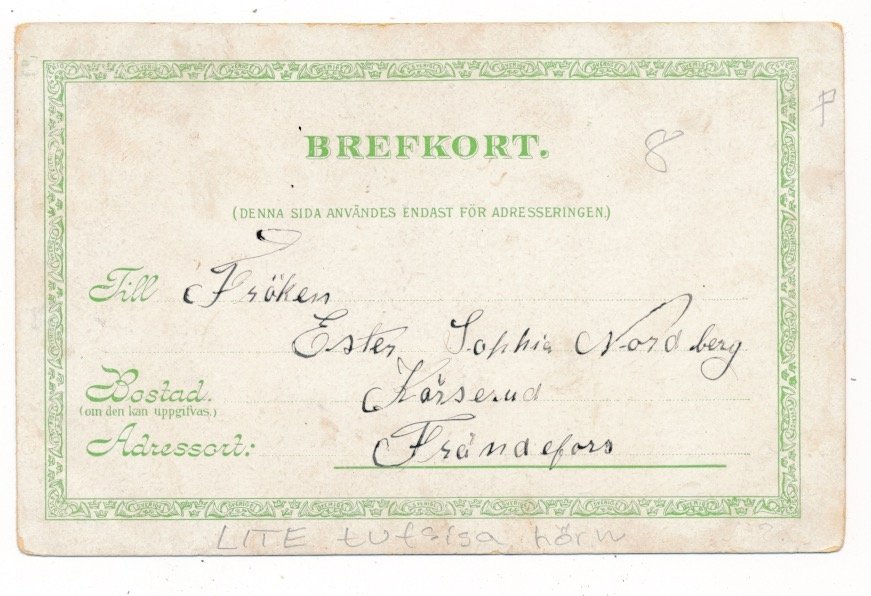 BREFKORT.
8
P
(DENNA SIDA ANVÄNDES ENDAST FÖR ADRESSERINGEN.)
Till Fröken
Ester Sophia Nordberg
Bostad. Kårserud
(om den kan uppgifvas.)
Adressort: Frändefors
LITE tufsisa hörn